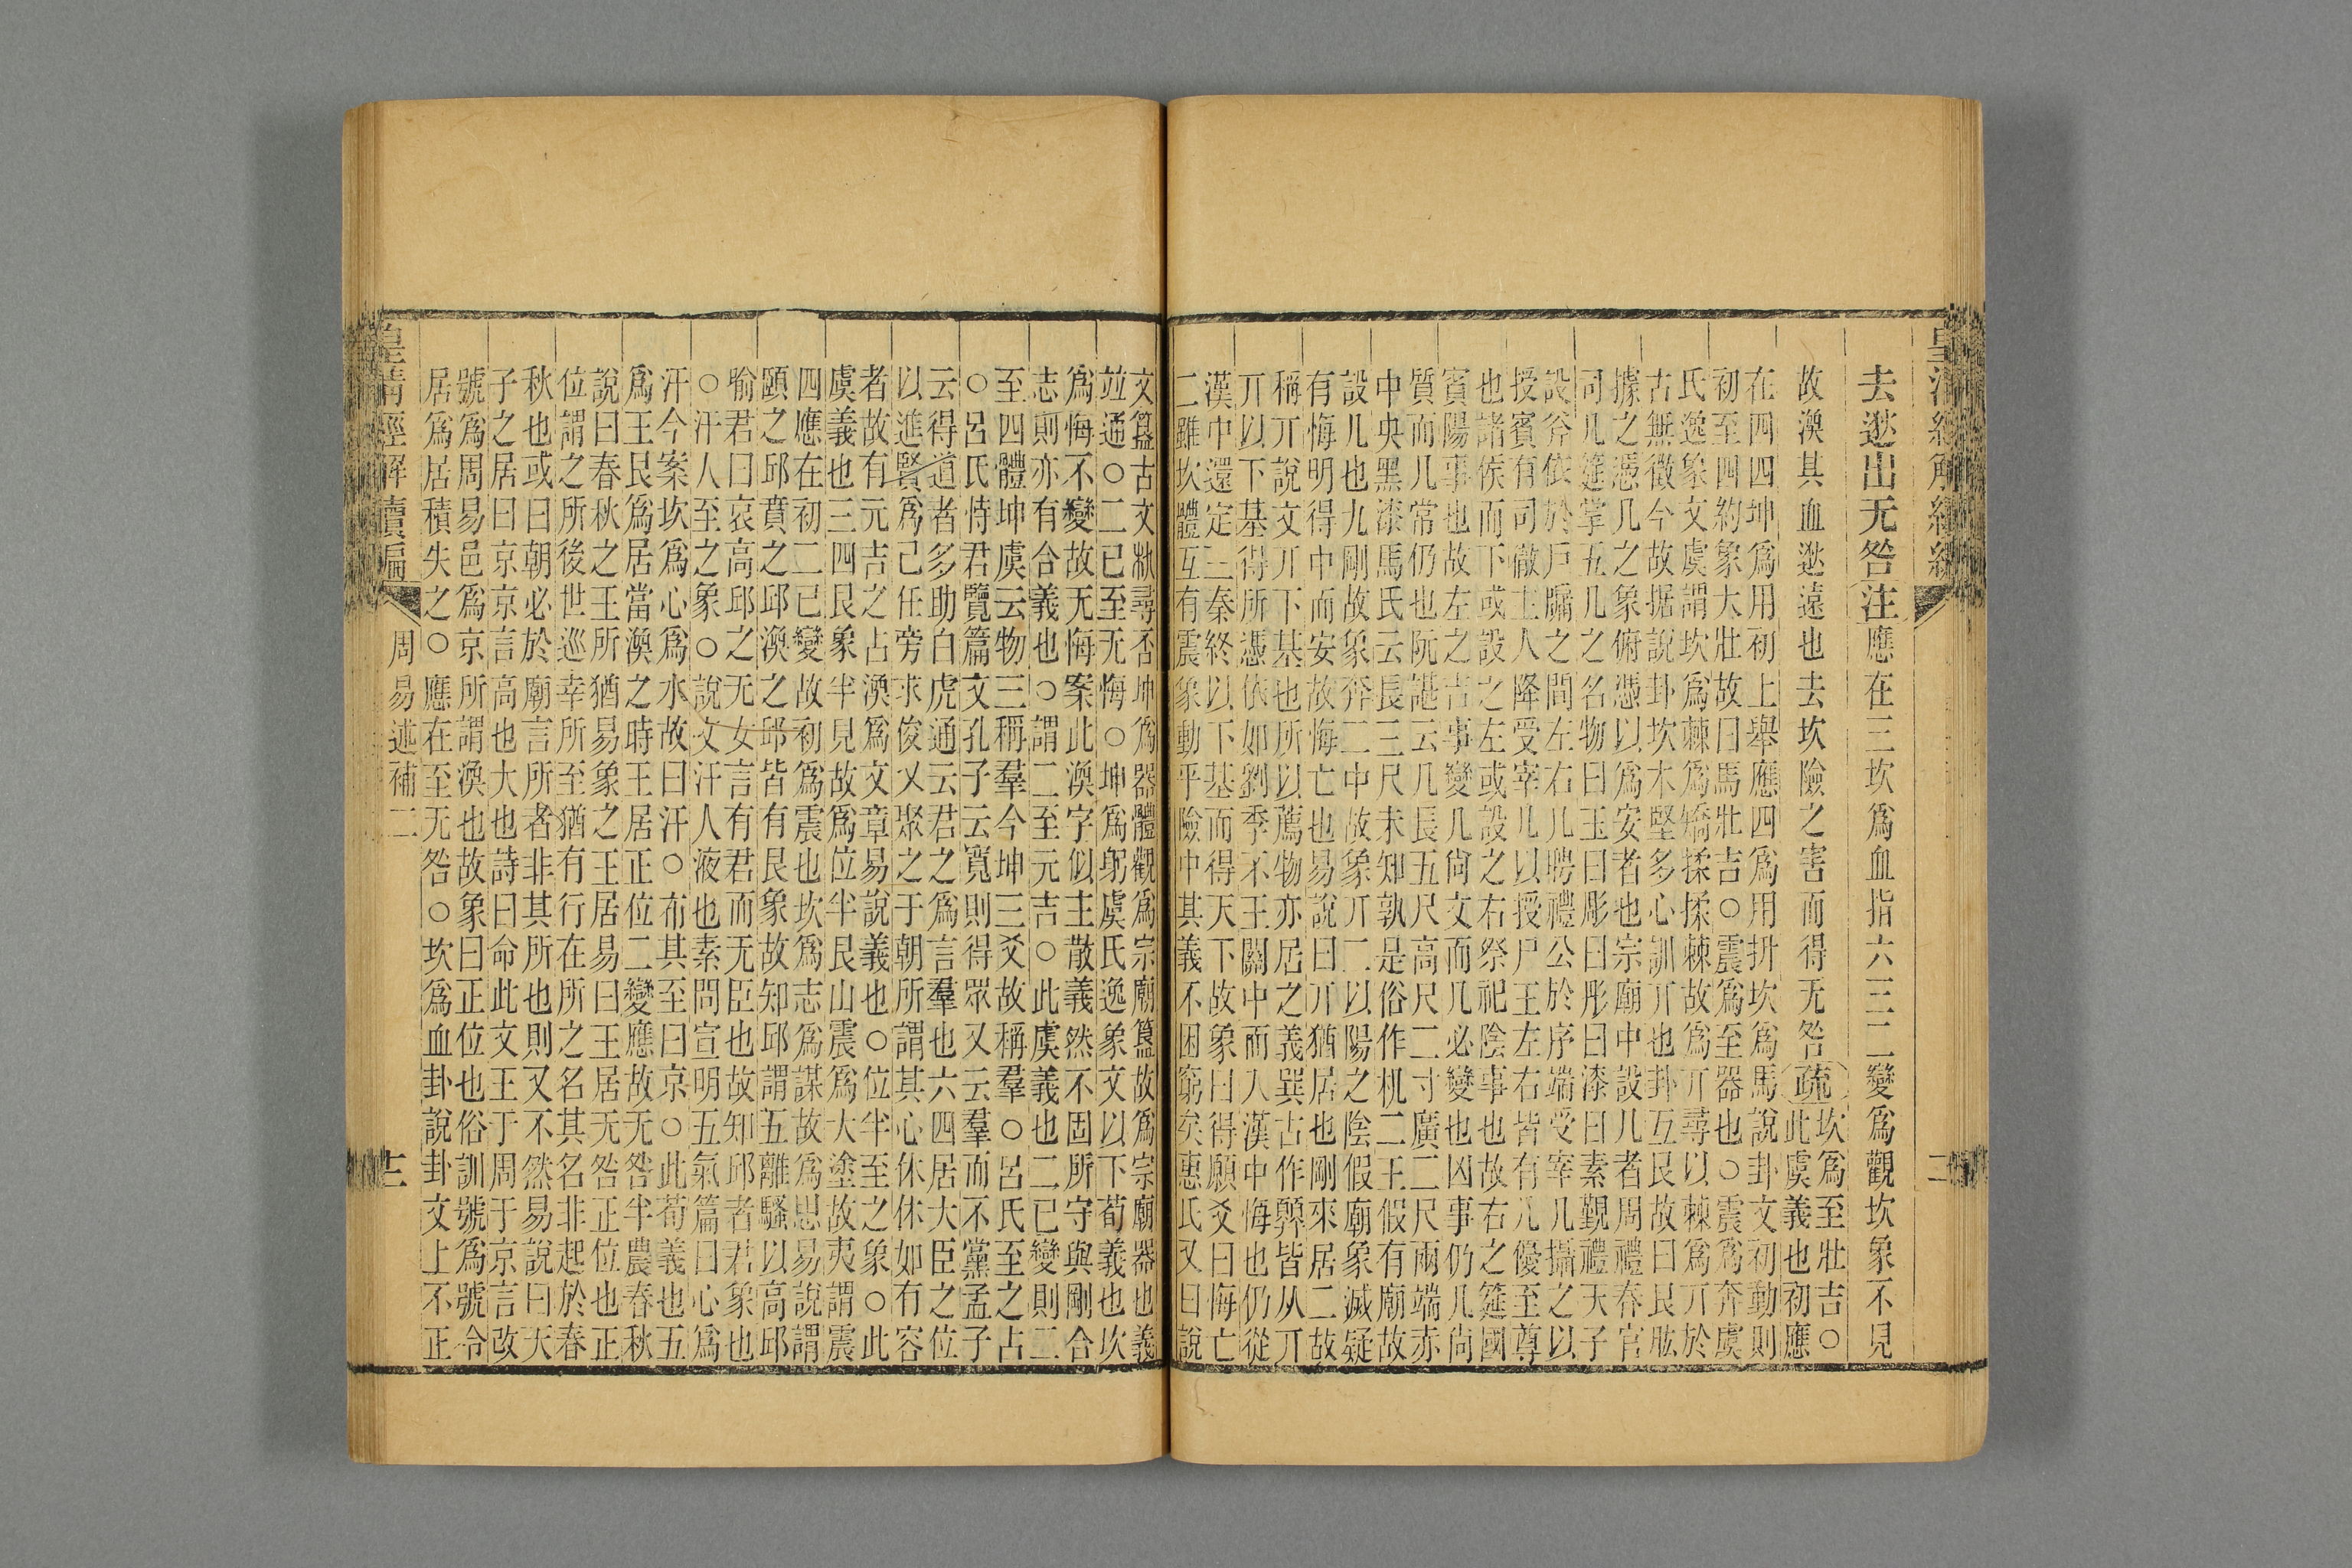 去逖出无咎注應在三坎爲血指六三二變爲觀坎象不見
故渙其血逖遠也去坎險之害而得无咎疏
坎爲至壯吉○
此虞義也初應
在四四坤爲用初上舉應四爲用拚坎爲馬說卦文初動則
初至四約象大壯故曰馬壯吉○震爲至器也○震爲奔虞
氏逸象文虞謂坎爲棘爲矯揉揉棘故爲丌尋以棘爲丌於
古無徵今故据說卦坎木堅多心訓丌也卦互艮故曰艮肱
據之憑几之象俯憑以爲安者也宗廟中設几者周禮春官
司几筵掌五几之名物曰玉曰彫曰彤曰漆曰素覲禮天子
設斧依於戶牖之間左右几聘禮公於序端受宰几攝之以
授賓有司徹主人降受宰几以授尸王左右皆有几優至尊
也諸侯而下或設之左或設之右祭祀陰事也故右之筵國
賓陽事也故左之吉事變几尙文而几必變也凶事仍几尙
質而几常仍也阮諶云几長五尺高尺二寸廣二尺兩端赤
中央黑漆馬氏云長三尺未知孰是俗作机二王假有廟故
設几也九剛故象奔二中故象丌二以陽之陰假廟象滅疑
有悔明得中而安故悔亡也易說曰丌猶居也剛來居二故
稱丌說文丌下基也所以薦物亦居之義巽古作顨皆从丌
丌以下基得所憑依如劉季不王關中而入漢中悔也仍從
漢中還定三秦終以下基而得天下故象曰得願爻曰悔亡
二雖坎體互有震象動乎險中其義不困窮矣惠氏又曰說
文簋古文杋尋否坤爲器體觀爲宗廟簋故爲宗廟器也義
竝通○二已至无悔○坤爲躬虞氏逸象文以下荀義也坎
爲悔不變故无悔案此渙字似主散義然不固所守與剛合
志則亦有合義也○謂二至元吉○此虞義也二已變則二
至四體坤虞云物三稱羣今坤三爻故稱羣○呂氏至之占
○呂氏恃君覽篇文孔子云寬則得眾又云羣而不黨孟子
云得道者多助白虎通云君之爲言羣也六四居大臣之位
以進賢爲己任旁求俊乂聚之于朝所謂其心休休如有容
者故有元吉之占渙爲文章易說義也○位半至之象○此
虞義也三四艮象半見故爲位半艮山震爲大塗故夷謂震
四應在初二已變故初爲震也坎爲志爲謀故爲思易說謂
頤之邱賁之邱渙之邱皆有艮象故知邱謂五離騷以高邱
喻君曰哀高邱之无女言有君而无臣也故知邱者君象也
○汗人至之象○說文汗人液也素問宣明五氣篇曰心爲
汗今案坎爲心爲水故曰汗○布其至曰京○此荀義也五
爲王艮爲居當渙之時王居正位二變應故无咎半農春秋
說曰春秋之王所猶易象之王居易曰王居无咎正位也正
位謂之所後世巡幸所至猶有行在所之名其名非起於春
秋也或曰朝必於廟言所者非其所也則又不然易說曰天
子之居曰京京言高也大也詩曰命此文王于周于京言改
號爲周易邑爲京所謂渙也故象曰正位也俗訓號爲號令
居爲居積失之○應在至无咎○坎爲血卦說卦文上不正
皇清經解賣扁
周易述補二